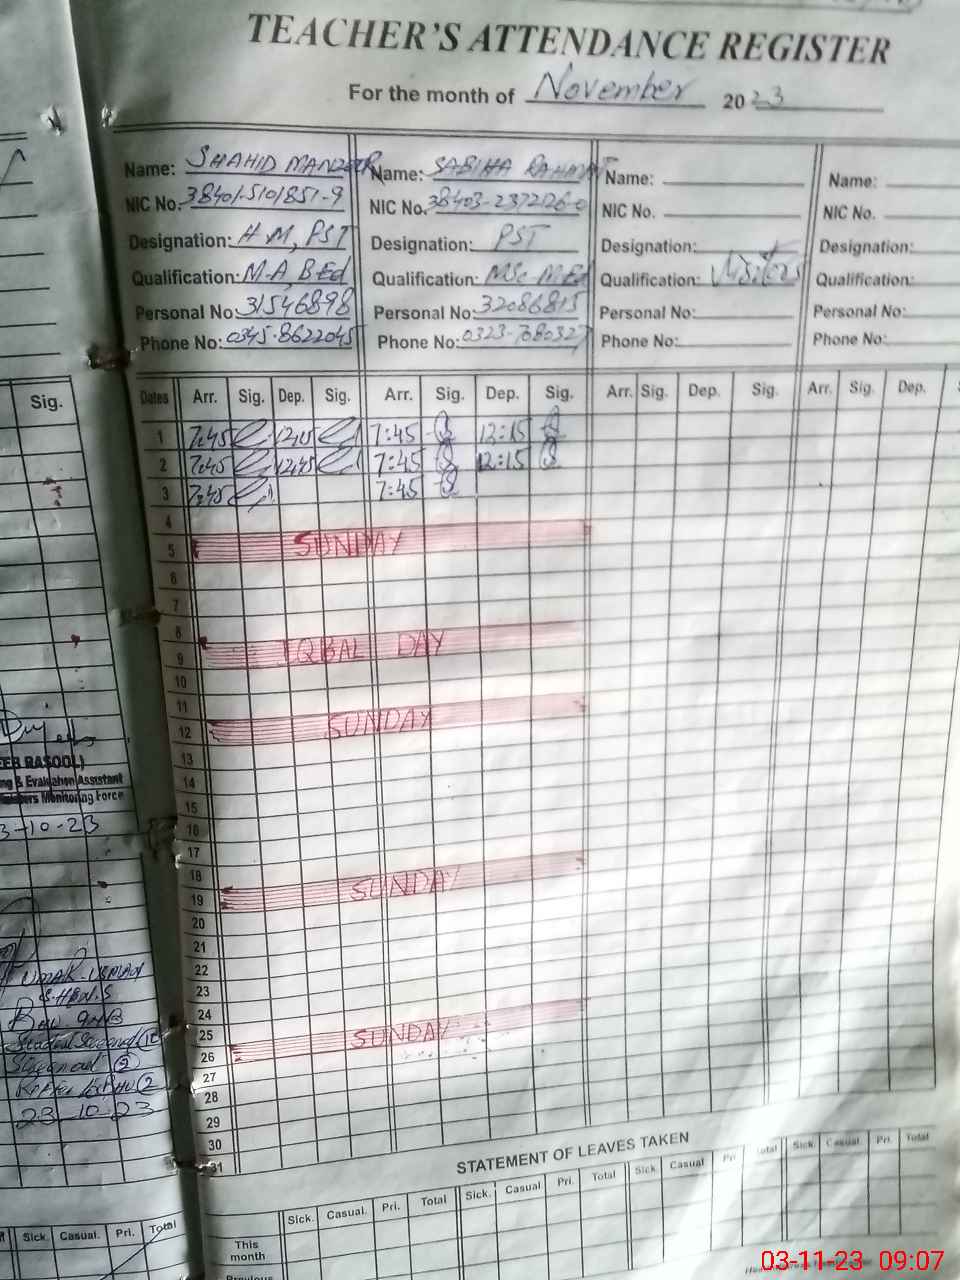 TEACHER'S ATTENDANCE REGISTER
For the month of November 2023
Name: SHAHID MANZOOR Name: SABIHA RAHMAT Name: Name:
NIC No. 38401-5101851-9 NIC No. 38403-2372126-0 NIC No. NIC No.
Designation: H.M, PST Designation: PST Designation: Designation:
Qualification: M.A, B.Ed Qualification: MSc M.Ed Qualification: Visitors Qualification:
Personal No: 31546898 Personal No: 32086815 Personal No: Personal No:
Phone No: 0345-8622045 Phone No: 0323-7680327 Phone No: Phone No:
Dates Arr. Sig. Dep. Sig. Arr. Sig. Dep. Sig. Arr. Sig. Dep. Sig. Arr. Sig. Dep.
1 7:45 12:15 7:45 12:15
2 7:45 12:45 7:45 12:15
3 7:45 7:45
4
5 SUNDAY
6
7
8
9 IQBAL DAY
10
11
12 SUNDAY
13
14
15
16
17
18
19 SUNDAY
20
21
22
23
24
25
26 SUNDAY
27
28
29
30
31
STATEMENT OF LEAVES TAKEN
Sick. Casual. Pri. Total Sick. Casual. Pri. Total Sick. Casual Pri Total Sick. Casual. Pri. Total
This month
Previous
Sig.
EEB RASOOL)
ng & Evaluation Assistant
Monitoring Force
3-10-23
UMAR USMAN
S.H&N.S
23-10-23
Sick. Casual. Pri. Total
03-11-23 09:07